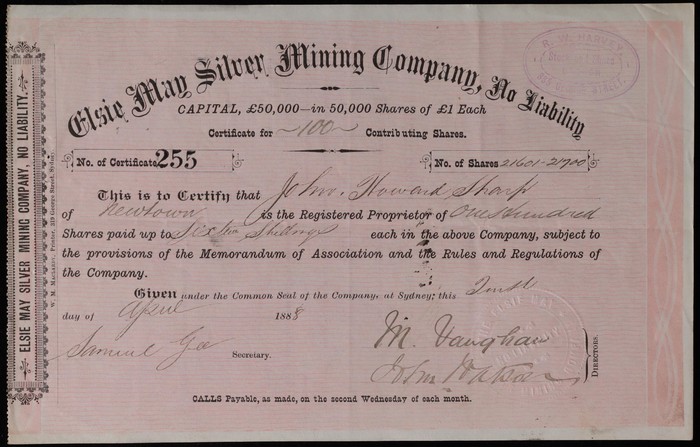 ELSIE MAY SILVER MINING COMPANY, NO LIABILITY.
R. W. HARVEY,
Elsie May Silver Mining Company, No Liability
CAPITAL, £50,000—in 50,000 Shares of £1 Each
Certificate for ~100~ Contributing Shares.
No. of Certificate 255
No. of Shares 21601-21700
This is to Certify that John Howard Sharp
of Newtown is the Registered Proprietor of One Hundred
Shares paid up to Shillings each in the above Company, subject to
the provisions of the Memorandum of Association and the Rules and Regulations of
the Company.
Given under the Common Seal of the Company, at Sydney, this
day of April 1888
Samuel Gee Secretary.
M. Vaughan
John Watson
DIRECTORS.
CALLS Payable, as made, on the second Wednesday of each month.